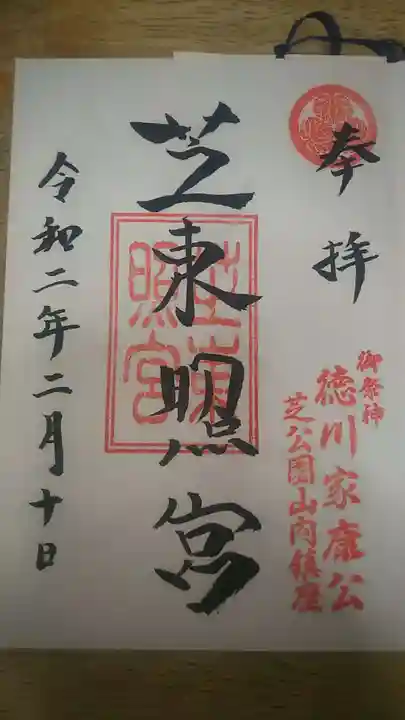 奉拝
御祭神
徳川家康公
芝公園山内鎮座
芝東照宮
芝東
照宮
令和二年二月十日